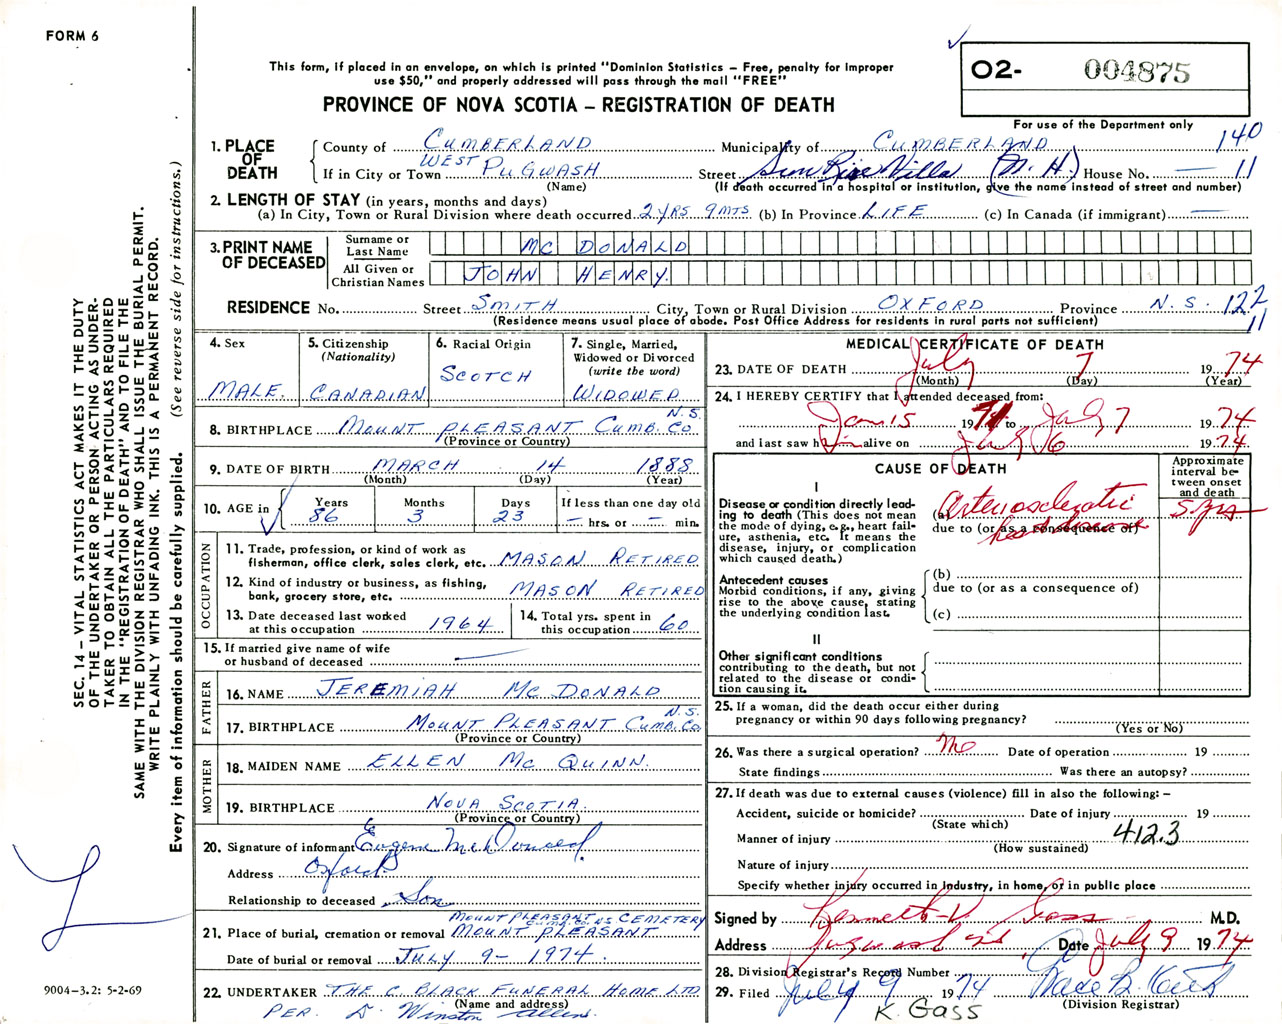 FORM 6
This form, if placed in an envelope, on which is printed "Dominion Statistics – Free, penalty for improper
use $50," and properly addressed will pass through the mail "FREE"
PROVINCE OF NOVA SCOTIA – REGISTRATION OF DEATH
O2- 004875
For use of the Department only
140
11
1. PLACE OF DEATH
County of CUMBERLAND Municipality of CUMBERLAND
If in City or Town WEST PUGWASH Street Sun Rise Villa (N. H.) House No. —
(Name) (If death occurred in a hospital or institution, give the name instead of street and number)
2. LENGTH OF STAY (in years, months and days)
(a) In City, Town or Rural Division where death occurred 2 YRS 9 MTS (b) In Province LIFE (c) In Canada (if immigrant) —
3. PRINT NAME OF DECEASED
Surname or Last Name MC DONALD
All Given or Christian Names JOHN HENRY
RESIDENCE No. Street SMITH City, Town or Rural Division OXFORD Province N.S. 122
11
(Residence means usual place of abode. Post Office Address for residents in rural parts not sufficient)
4. Sex
MALE.
5. Citizenship
(Nationality)
CANADIAN
6. Racial Origin
SCOTCH
7. Single, Married,
Widowed or Divorced
(write the word)
WIDOWED
8. BIRTHPLACE MOUNT PLEASANT CUMB. CO N.S.
(Province or Country)
9. DATE OF BIRTH MARCH 14 1888
(Month) (Day) (Year)
10. AGE in
Years 86
Months 3
Days 23
If less than one day old
– hrs. or – min.
OCCUPATION
11. Trade, profession, or kind of work as
fisherman, office clerk, sales clerk, etc. MASON RETIRED
12. Kind of industry or business, as fishing,
bank, grocery store, etc. MASON RETIRED
13. Date deceased last worked
at this occupation 1964
14. Total yrs. spent in
this occupation 60
15. If married give name of wife
or husband of deceased —
FATHER
16. NAME JEREMIAH MC DONALD
17. BIRTHPLACE MOUNT PLEASANT CUMB. CO N.S.
(Province or Country)
MOTHER
18. MAIDEN NAME ELLEN MC QUINN.
19. BIRTHPLACE NOVA SCOTIA
(Province or Country)
20. Signature of informant Eugene McDonald
Address Oxford
Relationship to deceased Son
MOUNT PLEASANT CEMETERY
CUMB. CO. NS
21. Place of burial, cremation or removal MOUNT PLEASANT
Date of burial or removal JULY 9 – 1974
22. UNDERTAKER THE C. BLACK FUNERAL HOME LTD
(Name and address)
PER. D. Winston Allen
MEDICAL CERTIFICATE OF DEATH
23. DATE OF DEATH July 7 1974
(Month) (Day) (Year)
24. I HEREBY CERTIFY that I attended deceased from:
Jan 15 1971 to July 7 1974
and last saw him alive on July 6 1974
CAUSE OF DEATH
Approximate
interval be-
tween onset
and death
I
Disease or condition directly lead-
ing to death (This does not mean
the mode of dying, e.g., heart fail-
ure, asthenia, etc. It means the
disease, injury, or complication
which caused death.)
(a) Arteriosclerotic 5 yrs
due to (or as a consequence of)
heart disease
Antecedent causes
Morbid conditions, if any, giving
rise to the above cause, stating
the underlying condition last.
(b)
due to (or as a consequence of)
(c)
II
Other significant conditions
contributing to the death, but not
related to the disease or condi-
tion causing it.
25. If a woman, did the death occur either during
pregnancy or within 90 days following pregnancy?
(Yes or No)
26. Was there a surgical operation? No Date of operation 19
State findings Was there an autopsy?
27. If death was due to external causes (violence) fill in also the following: –
Accident, suicide or homicide? Date of injury 19
(State which)
Manner of injury 412.3
(How sustained)
Nature of injury
Specify whether injury occurred in Industry, in home, or in public place
Signed by Kenneth V. Gass M.D.
Address Pugwash NS Date July 9 1974
28. Division Registrar's Record Number
29. Filed July 9 1974
(Division Registrar)
K. Gass
SEC. 14 – VITAL STATISTICS ACT MAKES IT THE DUTY
OF THE UNDERTAKER OR PERSON ACTING AS UNDER-
TAKER TO OBTAIN ALL THE PARTICULARS REQUIRED
IN THE "REGISTRATION OF DEATH" AND TO FILE THE
SAME WITH THE DIVISION REGISTRAR WHO SHALL ISSUE THE BURIAL PERMIT.
WRITE PLAINLY WITH UNFADING INK. THIS IS A PERMANENT RECORD.
Every item of information should be carefully supplied. (See reverse side for instructions.)
9004-3.2: 5-2-69